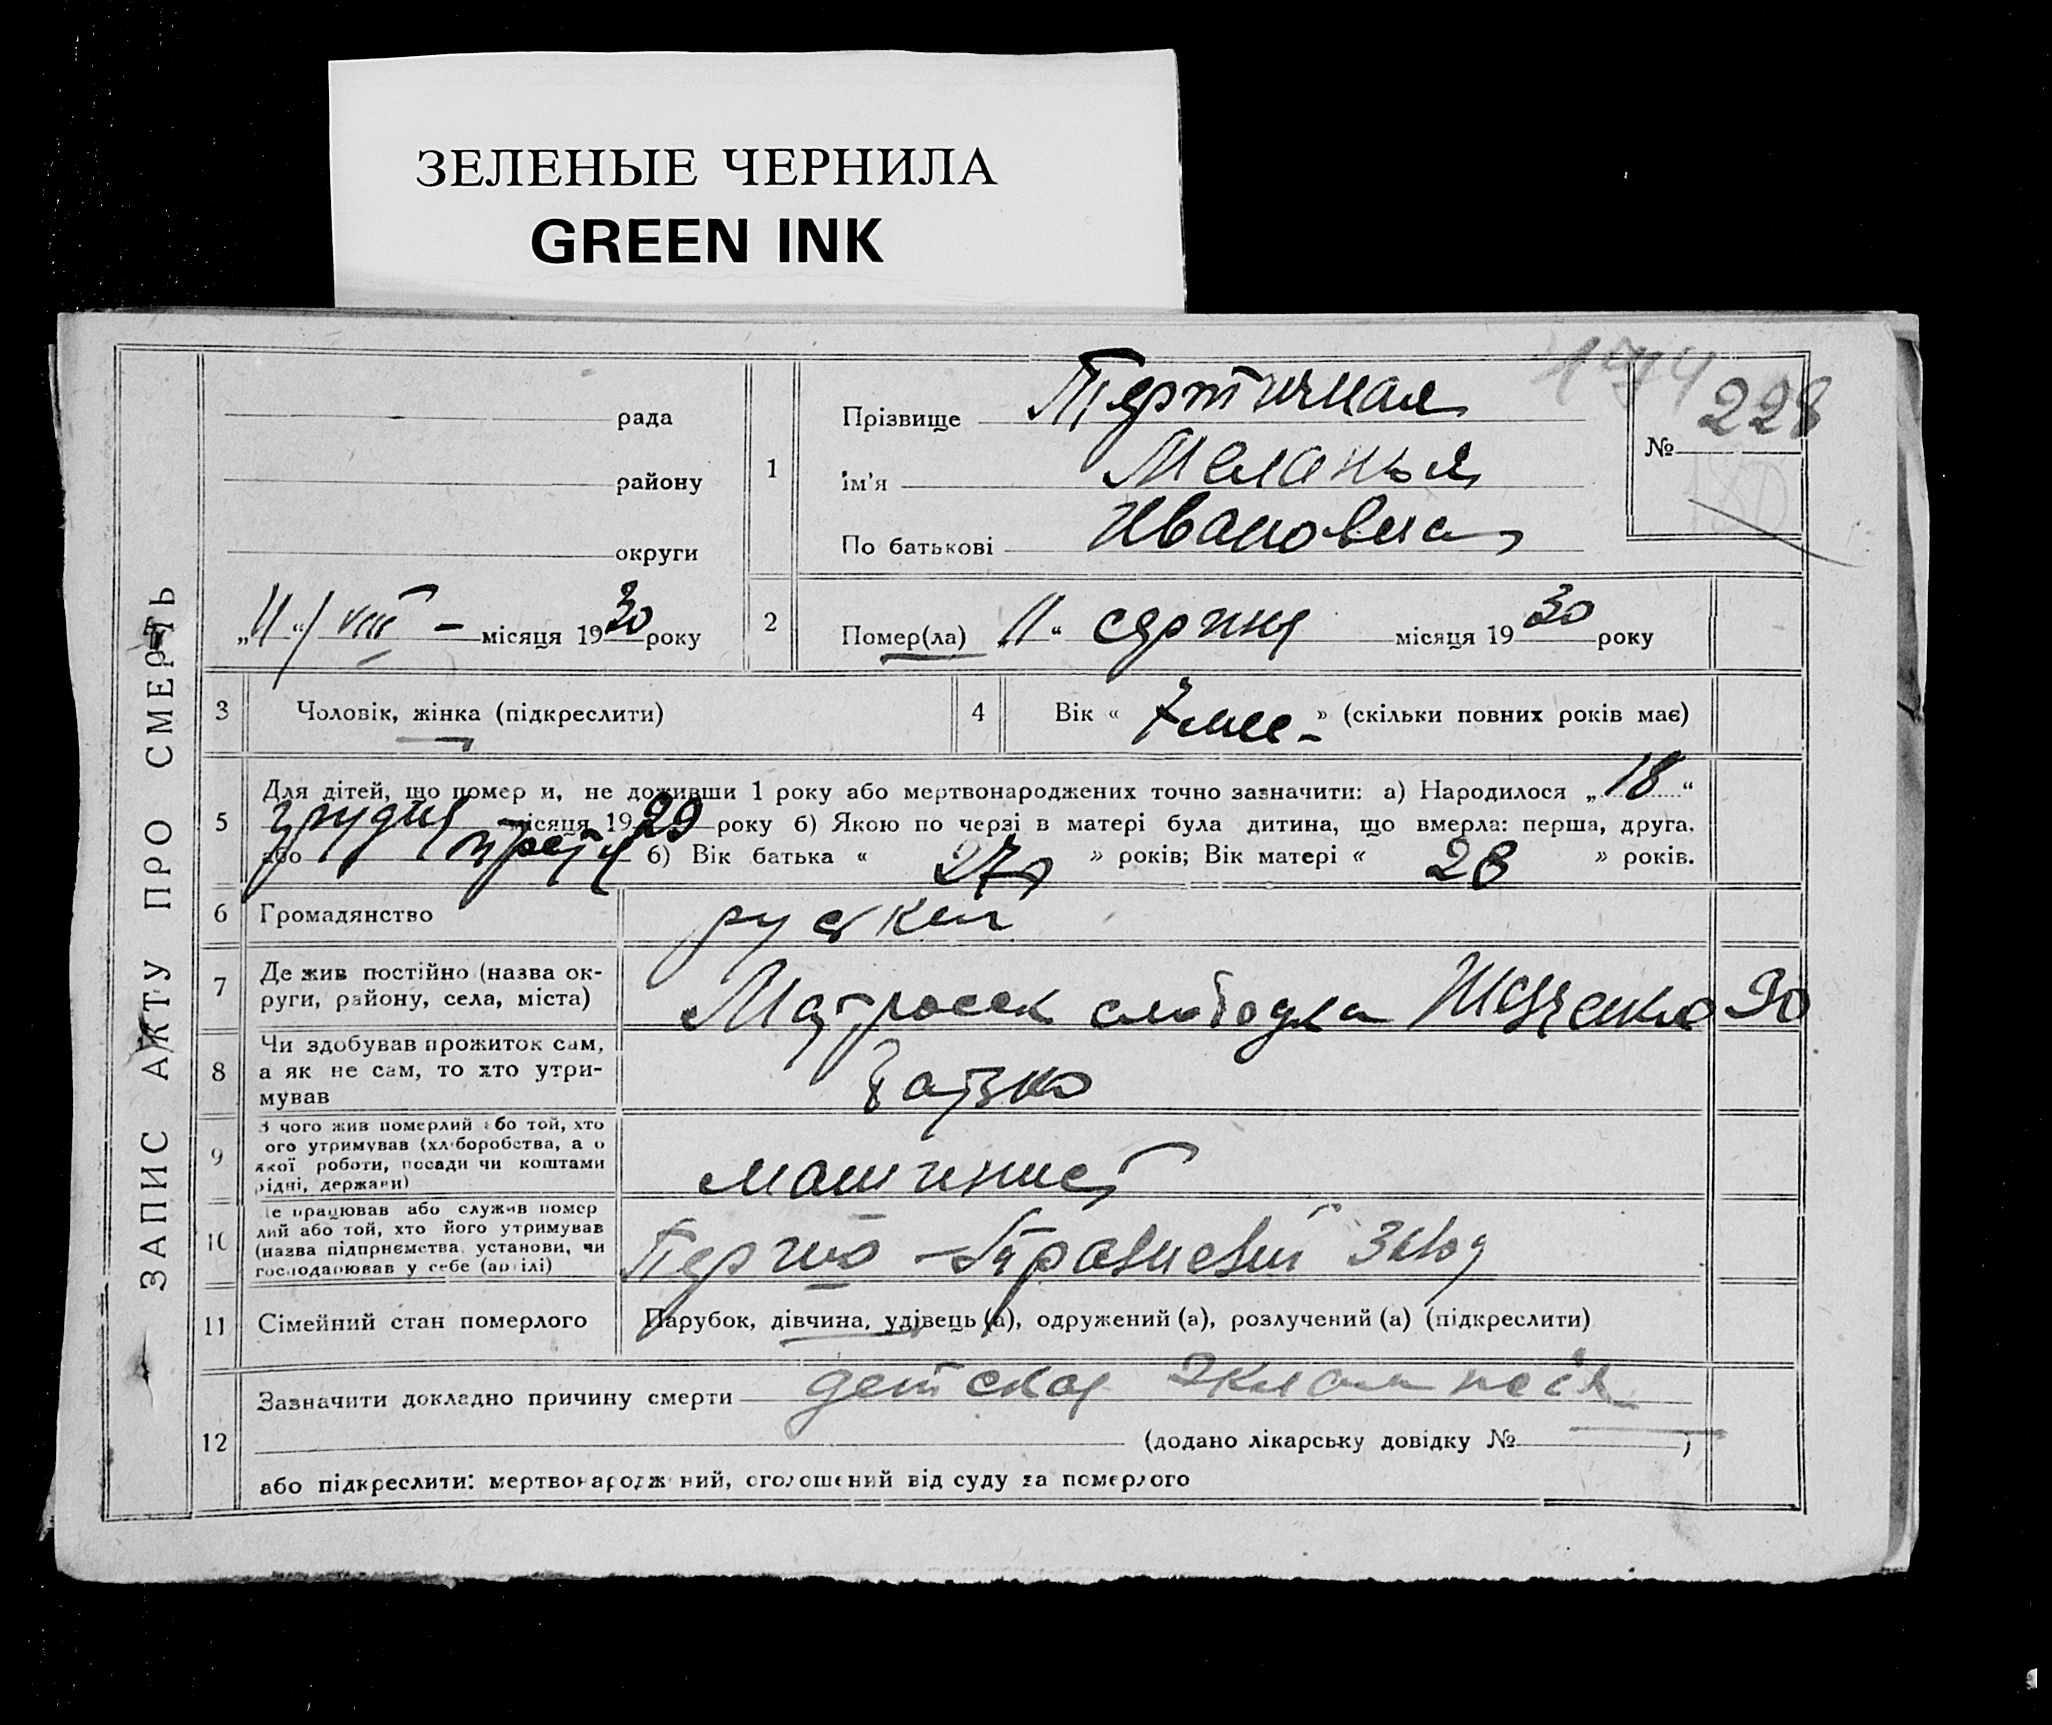 ЗЕЛЕНЫЕ ЧЕРНИЛА
GREEN INK
ЗАПИС АКТУ ПРО СМЕРТЬ
рада
району
округи
„11“/VIII - місяця 1930 року
1
Прізвище Тертичная
ім'я Меланья
По батькові Ивановна
№ 228
180
2
Помер(ла) „11“ серпня місяця 1930 року
3
Чоловік, жінка (підкреслити)
4
Вік « 7 мес- » (скільки повних років має)
5
Для дітей, що помер и, не доживши 1 року або мертвонароджених точно зазначити: а) Народилося „18“
грудня місяця 1929 року б) Якою по черзі в матері була дитина, що вмерла: перша, друга,
або третя б) Вік батька « 27 » років; Вік матері « 28 » років.
6
Громадянство
руский
7
Де жив постійно (назва ок-
руги, району, села, міста)
Матросск слободка Шевченко 90
8
Чи здобував прожиток сам,
а як не сам, то хто утри-
мував
батько
9
З чого жив померлий або той, хто
ого утримував (хліборобства, а о
якої роботи, посади чи коштами
рідні, держави)
машинист
10
е працював або служив помер
лий або той, хто його утримував
(назва підприємства, установи, чи
господарював у себе (артілі)
завод
11
Сімейний стан померлого
Парубок, дівчина, удівець (а), одружений (а), розлучений (а) (підкреслити)
12
Зазначити докладно причину смерти детская эклампсия
(додано лікарську довідку № )
або підкреслити: мертвонародж ний, оголошений від суду за померлого